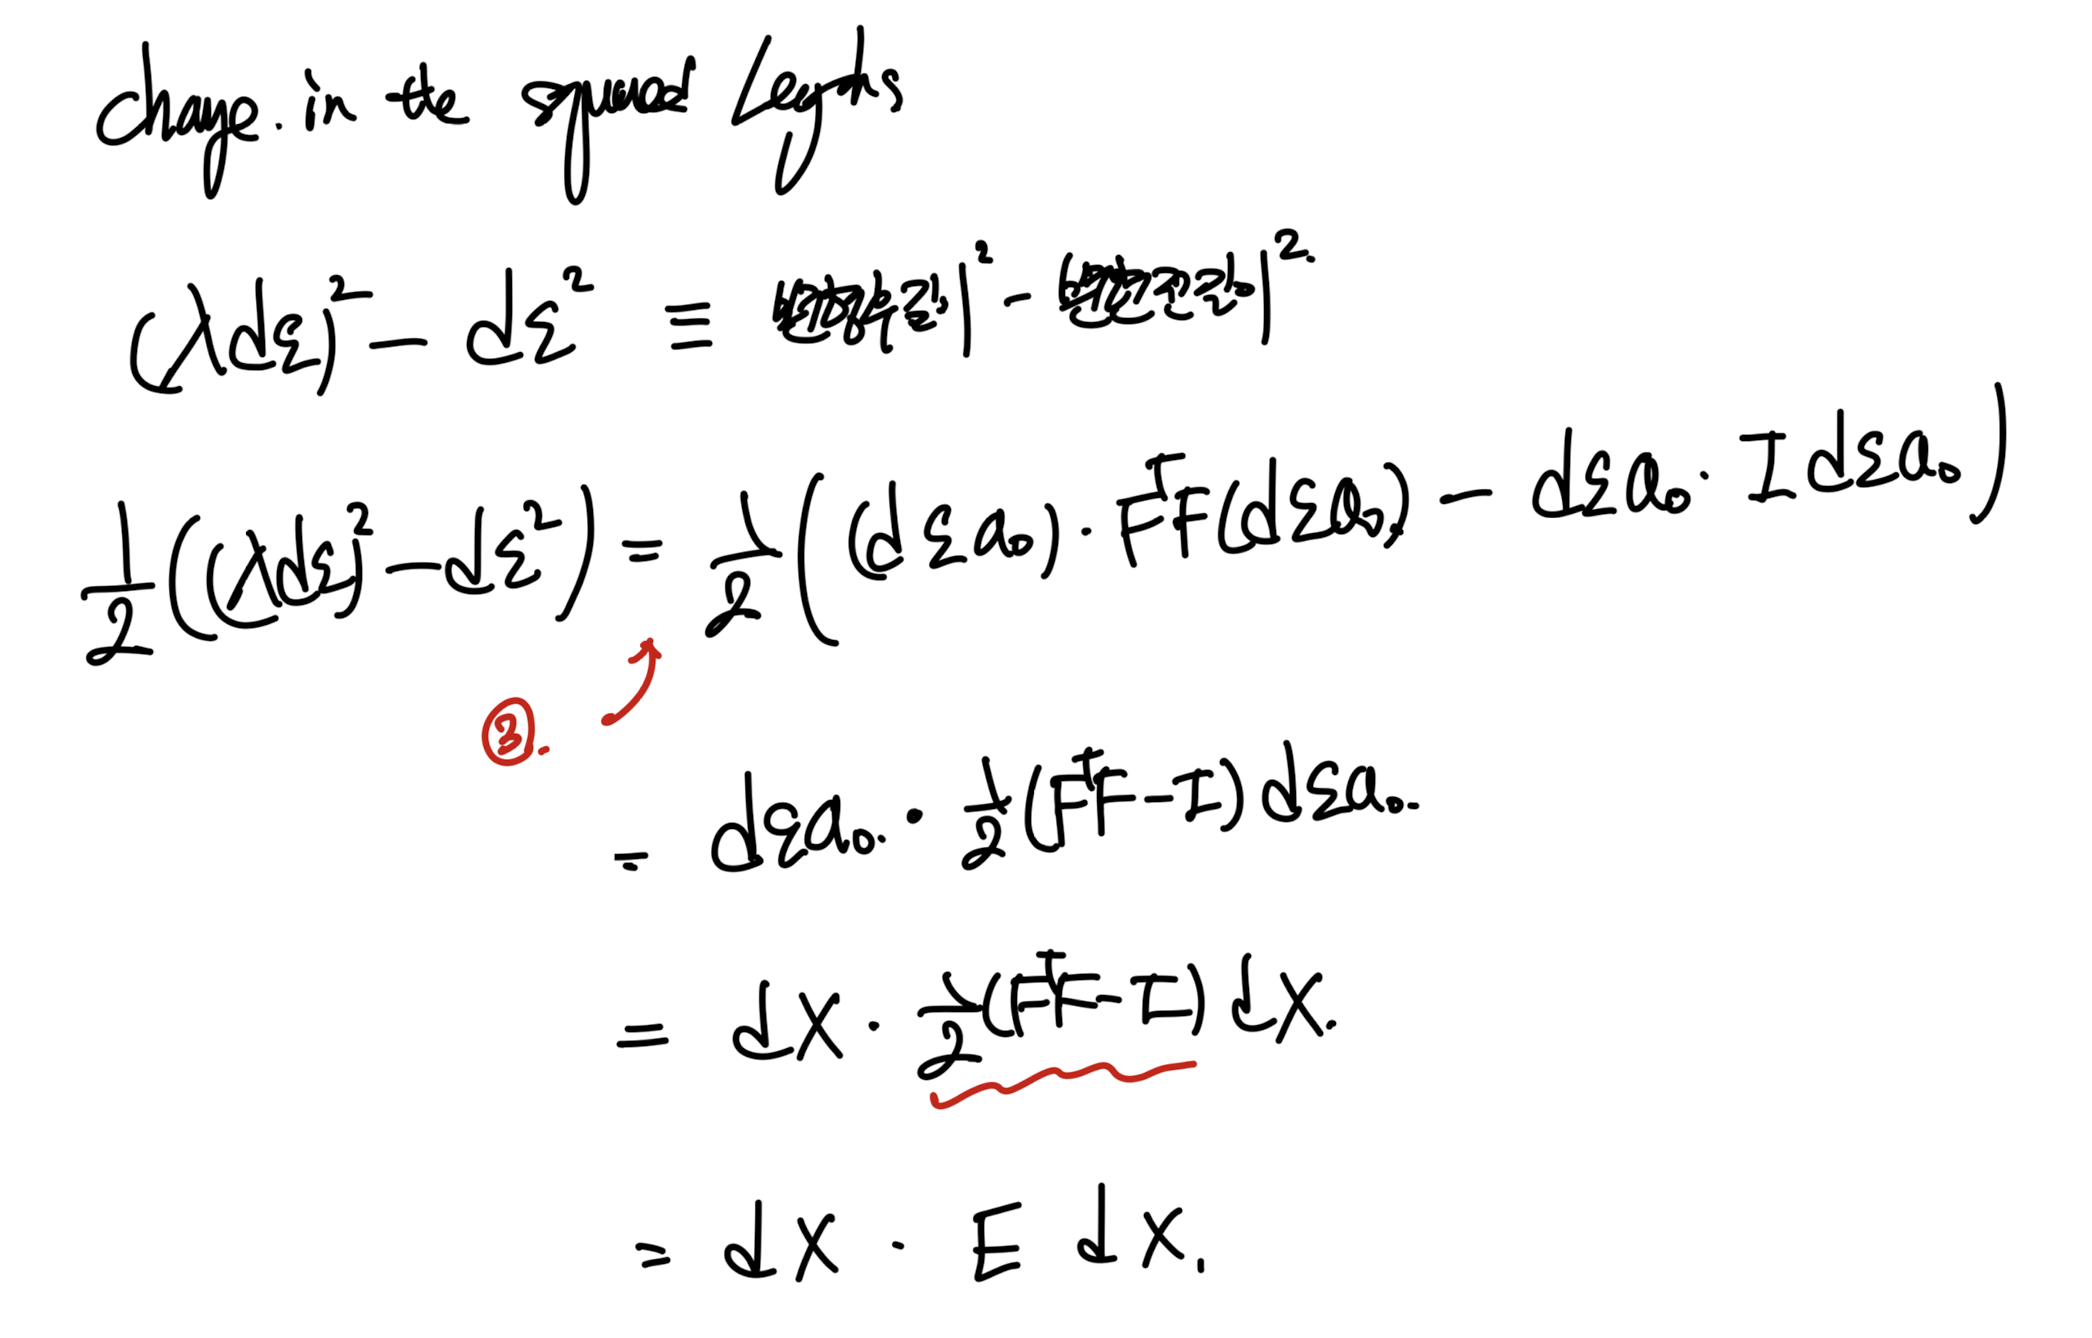 change. in the squared Lengths
(λdε)² − dε² ≡ 변형후길이|² − 변형전길이|².
½((λdε)² − dε²) = ½((dεa₀)·FᵀF(dεa₀) − dεa₀·I dεa₀)
③.
= dεa₀.·½(FᵀF−I)dεa₀.
= dX·½(FᵀF−I)dX.
= dX·E dX.